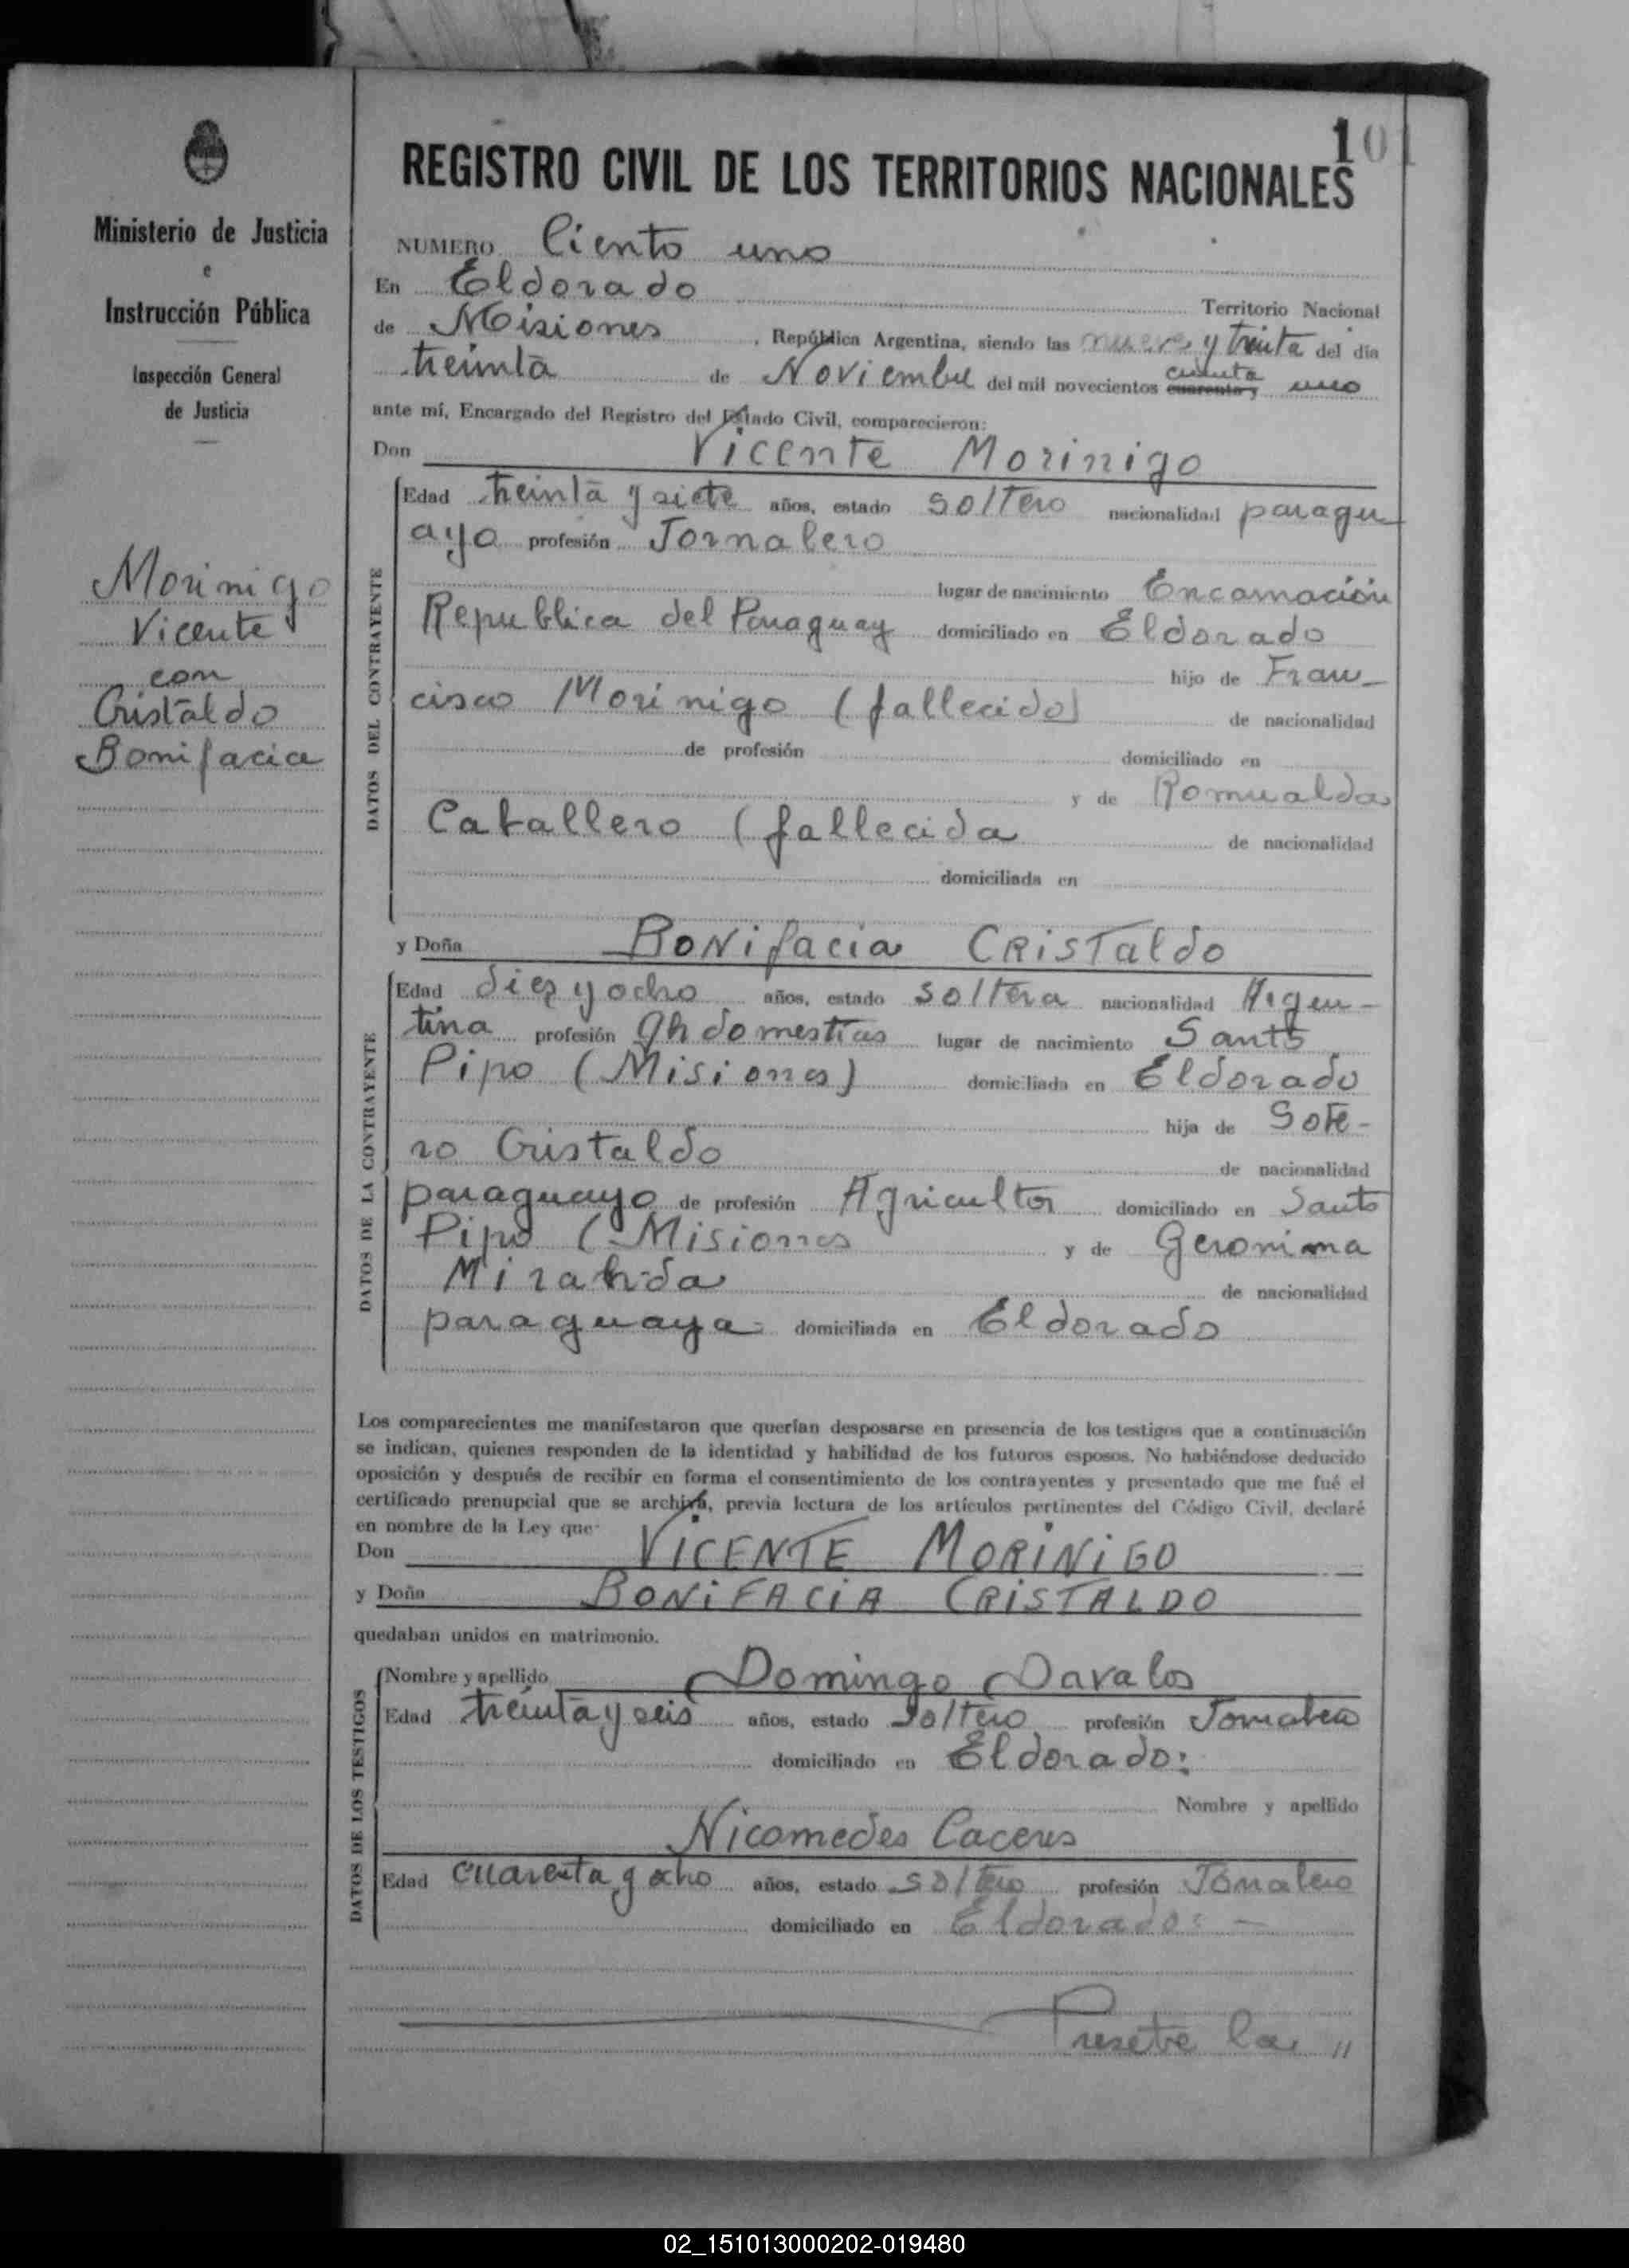 101
Ministerio de Justicia
e
Instrucción Pública
Inspección General
de Justicia
Morinigo
Vicente
con
Cristaldo
Bonifacia
REGISTRO CIVIL DE LOS TERRITORIOS NACIONALES
NUMERO Ciento uno
En Eldorado Territorio Nacional
de Misiones, República Argentina, siendo las nueve y treinta del día
treinta de Noviembre del mil novecientos cuarenta y uno
ante mí, Encargado del Registro del Estado Civil, comparecieron:
Don Vicente Morinigo
DATOS DEL CONTRAYENTE
Edad treinta y siete años, estado soltero nacionalidad paragu
ayo profesión Jornalero
lugar de nacimiento Encarnación
Republica del Paraguay domiciliado en Eldorado
hijo de Fran-
cisco Morinigo (fallecido) de nacionalidad
de profesión domiciliado en
y de Romualda
Caballero (fallecida de nacionalidad
domiciliada en
y Doña Bonifacia Cristaldo
DATOS DE LA CONTRAYENTE
Edad diez y ocho años, estado soltera nacionalidad Argen-
tina profesión qh domesticos lugar de nacimiento Santo
Pipo (Misiones) domiciliada en Eldorado
hija de Sote-
ro Cristaldo de nacionalidad
paraguayo de profesión Agricultor domiciliado en Santo
Pipo (Misiones y de Geronima
Miranda de nacionalidad
paraguaya domiciliada en Eldorado
Los comparecientes me manifestaron que querían desposarse en presencia de los testigos que a continuación
se indican, quienes responden de la identidad y habilidad de los futuros esposos. No habiéndose deducido
oposición y después de recibir en forma el consentimiento de los contrayentes y presentado que me fué el
certificado prenupcial que se archiva, previa lectura de los artículos pertinentes del Código Civil, declaré
en nombre de la Ley que
Don VICENTE MORINIGO
y Doña BONIFACIA CRISTALDO
quedaban unidos en matrimonio.
DATOS DE LOS TESTIGOS
Nombre y apellido Domingo Davalos
Edad treinta y seis años, estado soltero profesión Jornalero
domiciliado en Eldorado:
Nombre y apellido
Nicomedes Caceres
Edad cuarenta y ocho años, estado soltero profesión Jornalero
domiciliado en Eldorado: -
Presete la "
02_151013000202-019480